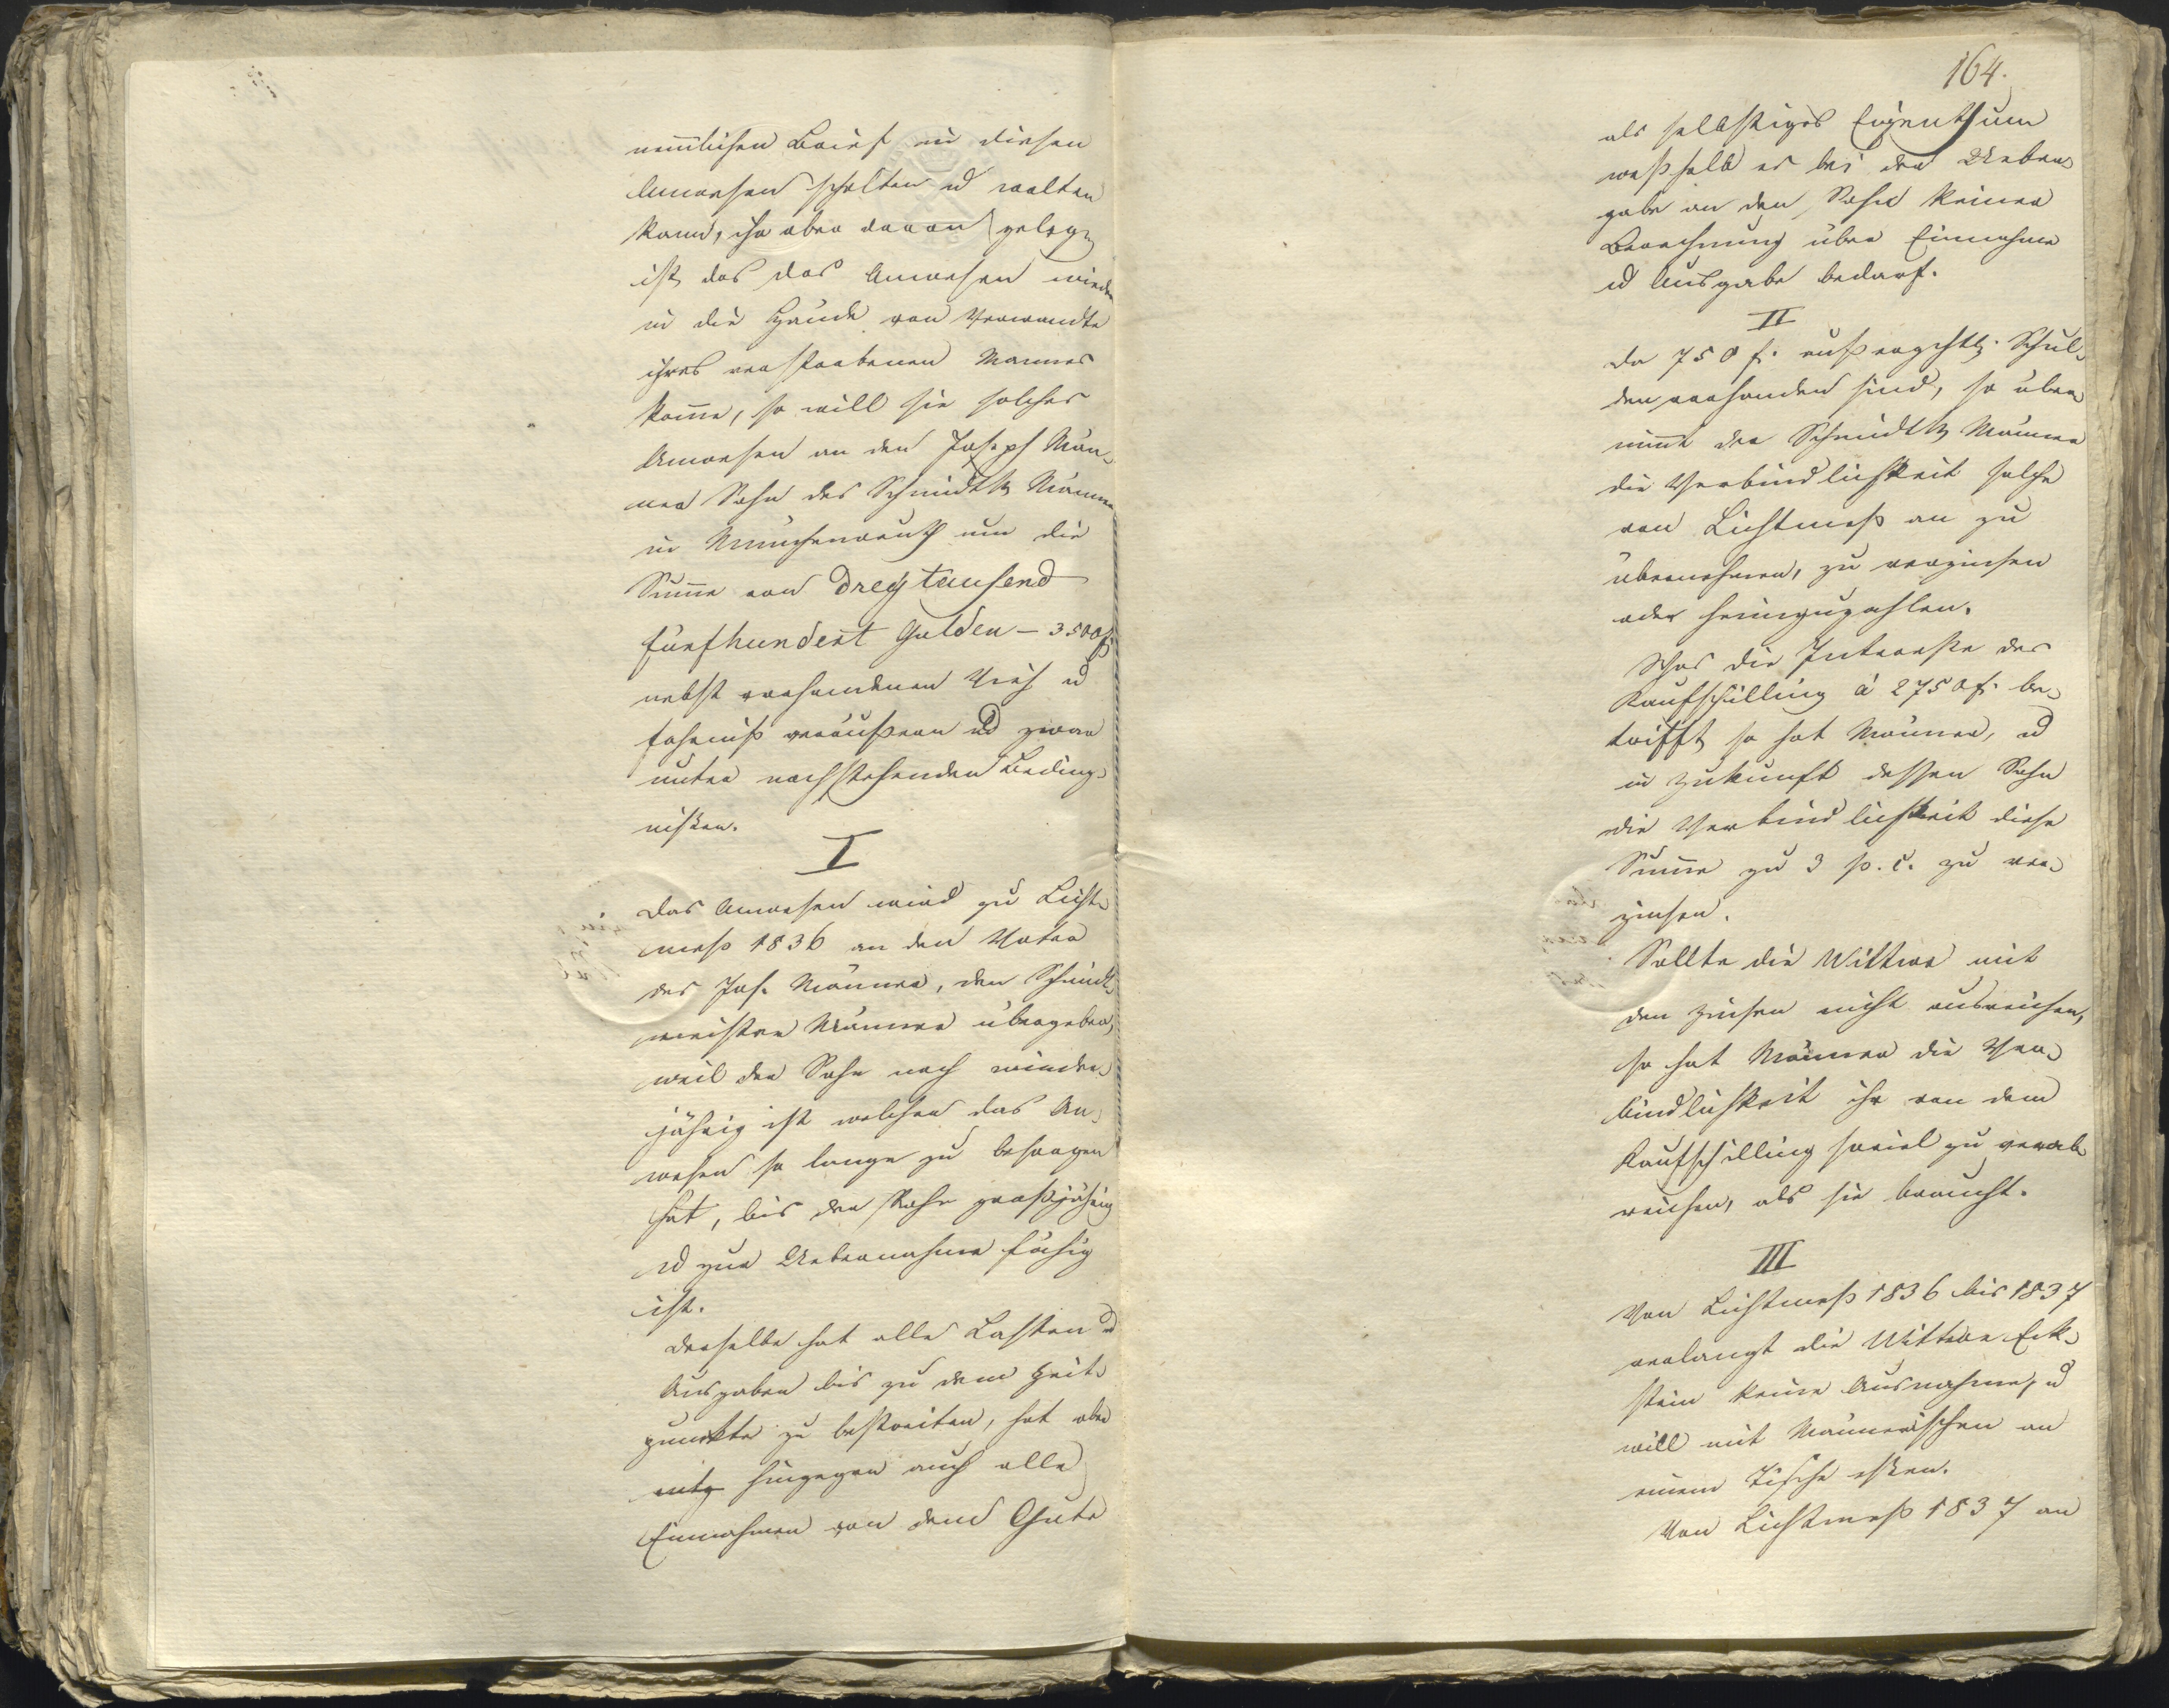 nemlichen Brief in diesen
Anwesen schalten u walten
kann, ihr aber daran gelegen
ist, das das Anwesen wieder
in die Hände von Verwandte
ihres verstorbenen Mannes
komme, so will sie solches
Anwesen an den Joseph Män-
ner Sohn des Schmidtb Männer
in Münchenreuth um die
Summe von Dreytausend
fünfhundert Gulden – 3500 f.
nebst vorhandenen Vieh u
Fahrniß veräußern ud zwar
unter nachstehenden Beding-
nißen.
I
Das Anwesen wird zu Licht-
meß 1836 an den Vater
des Jos. Männer, den Schmidt-
meister Männer übergeben,
weil der Sohn noch minder-
jährig ist welcher das An-
wesen so lange zu besorgen
hat, bis der Sohn großjährig
ud zur Uebernahme fähig
ist.
Derselbe hat alle Lasten u
Ausgaben bis zu dem Zeit-
punkte zu bestreiten, hat aber
hingegen auch alle
Einnahmen von dem Gute
164.
als selbstiges Eigenthum
weßhalb es bei der Ueber-
gabe an den Sohn keiner
Berechnung über Einnahme
ud Ausgabe bedarf.
II
Da 750 f. außergchtl. Schul-
den vorhanden sind, so über-
nimt der Schmidtb Männer
die Verbindlichkeit solche
von Lichtmeß an zu
übernehmen, zu verzinsen
oder heimzuzahlen.
Was die Intereße des
Kaufschilling á 2750 f. be-
trifft, so hat Männer, ud
in Zukunft dessen Sohn
die Verbindlichkeit diese
Summe zu 3 p. c. zu ver-
zinsen.
Sollte die Wittwe mit
den Zinsen nicht ausreichen,
so hat Männer die Ver-
bindlichkeit ihr von dem
Kaufschilling soviel zu verab
reichen, als sie braucht.
III
Von Lichtmeß 1836 bis 1837
verlangt die Wittwe Eck-
stein keine Ausnahme, u
will mit Männerischen an
einem Tische eßen.
Von Lichtmeß 1837 an